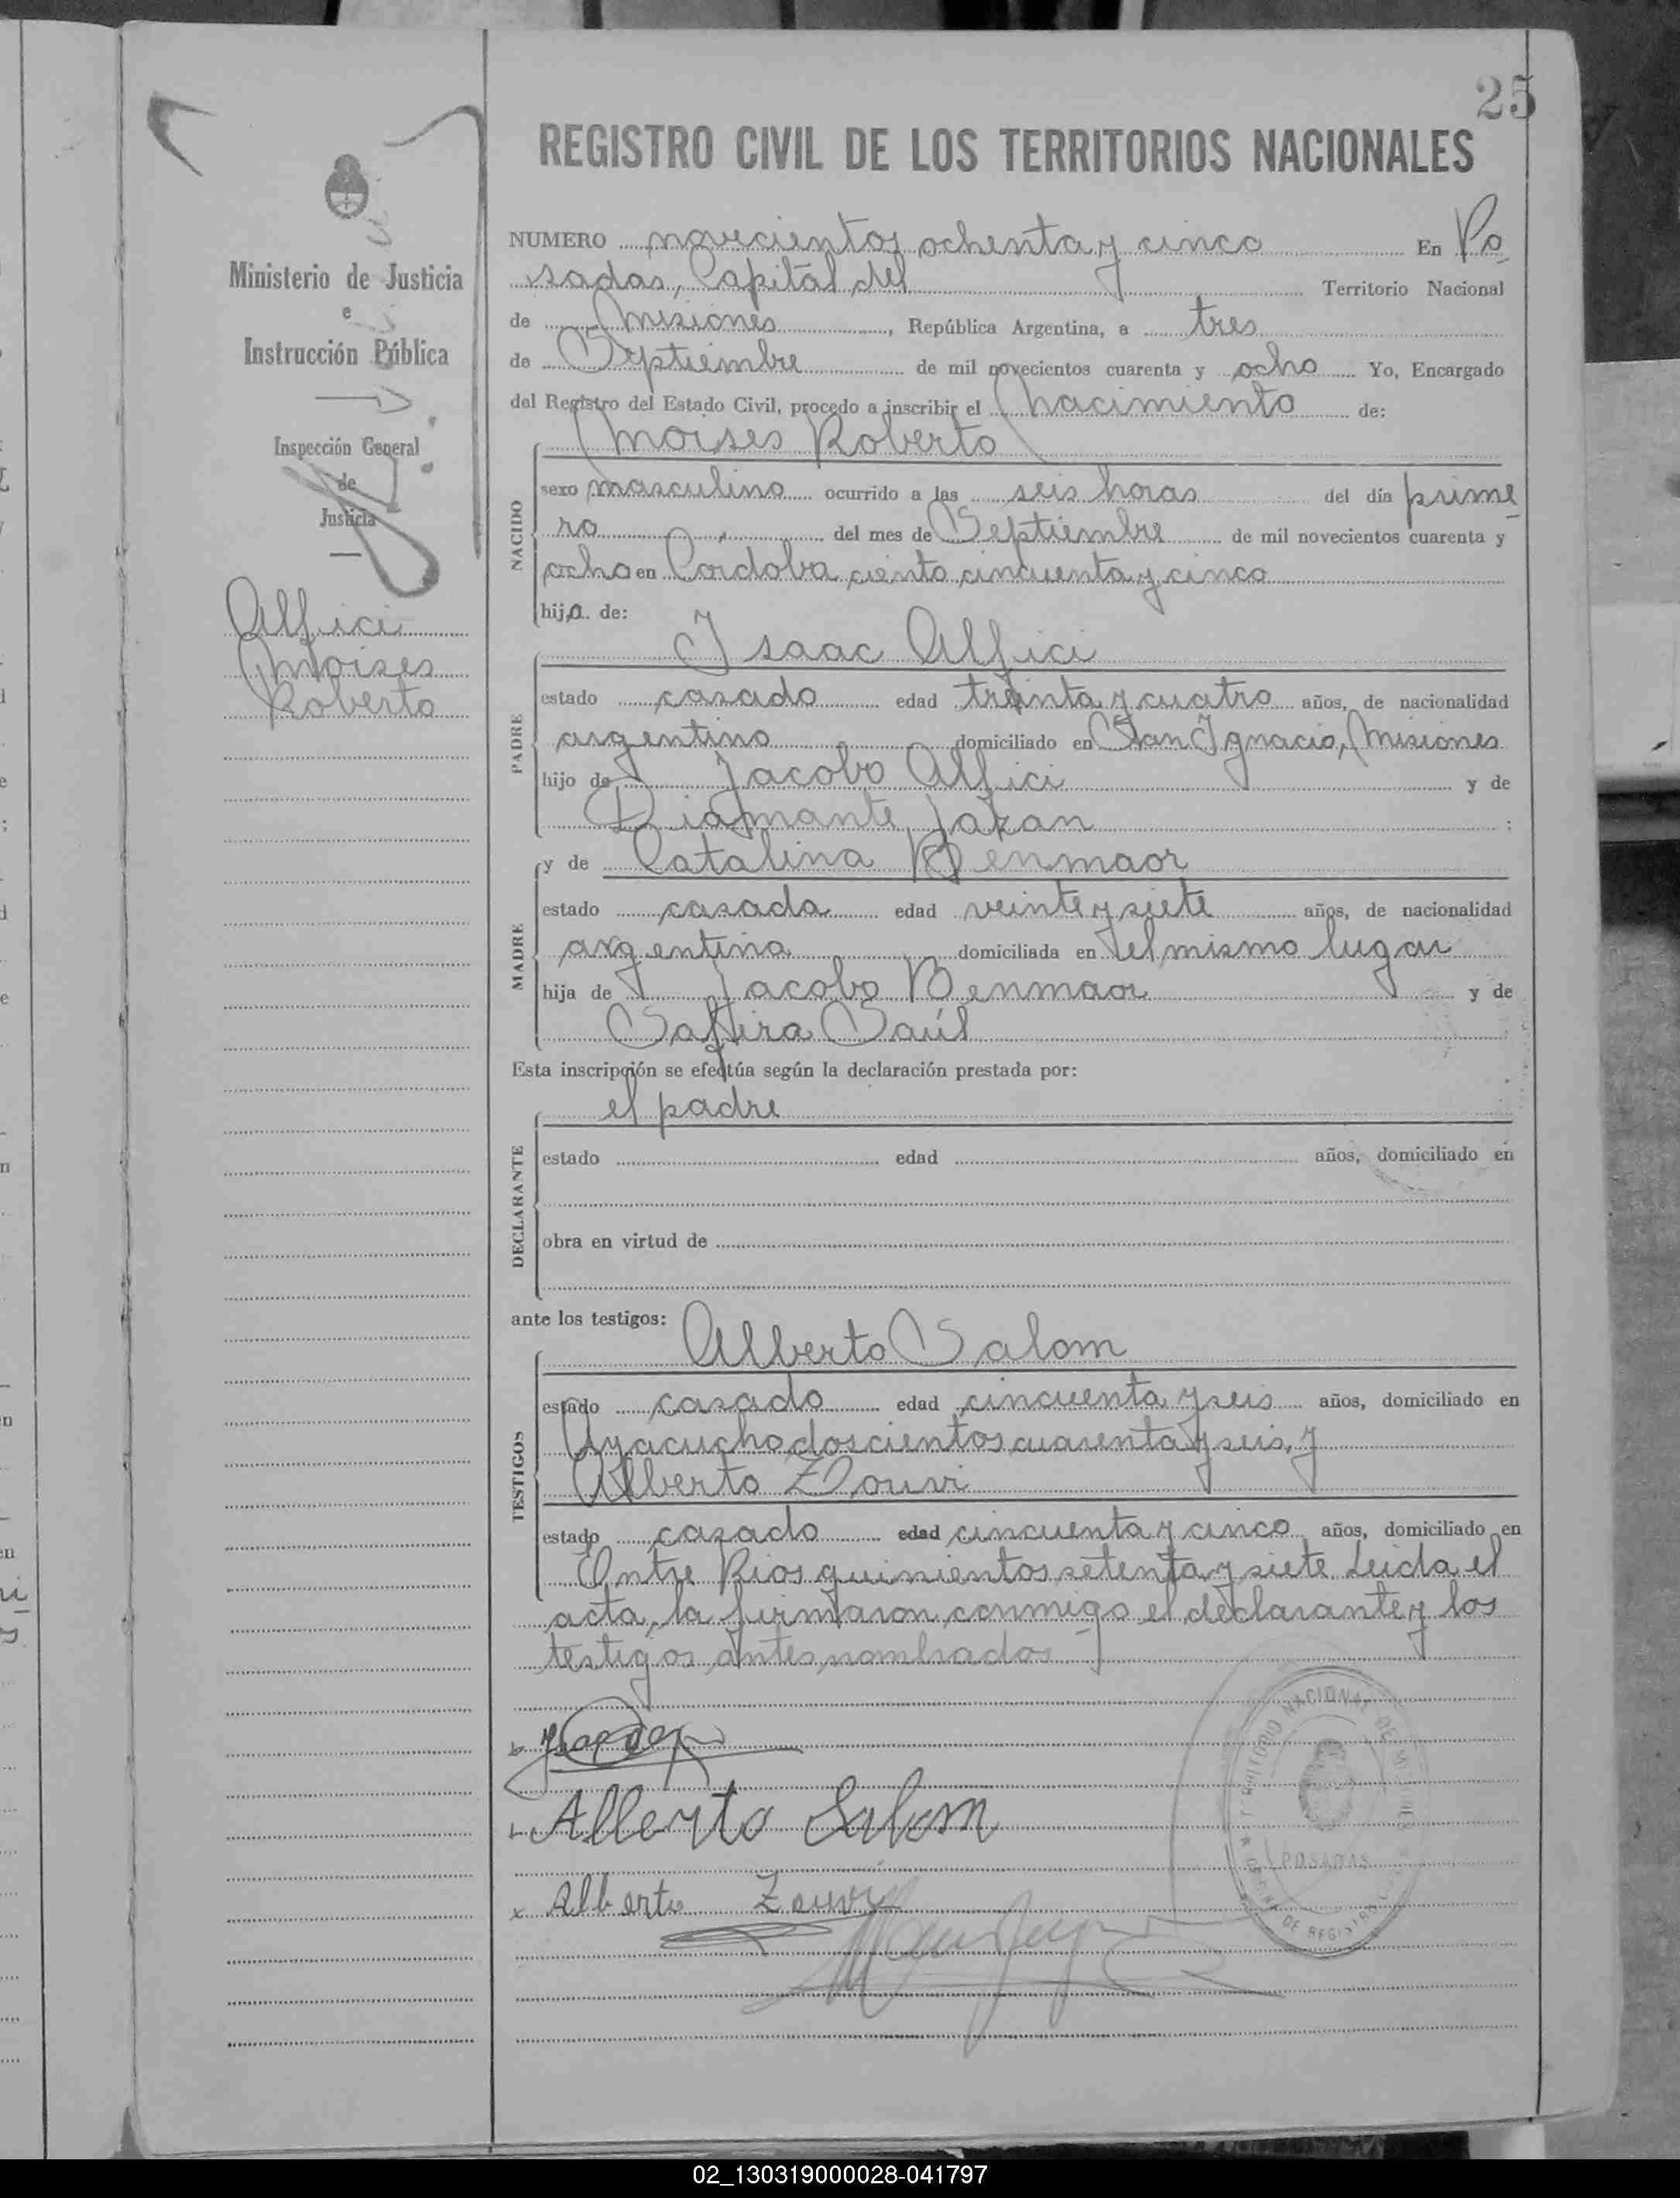 25
REGISTRO CIVIL DE LOS TERRITORIOS NACIONALES
Ministerio de Justicia
e
Instrucción Pública
Inspección General
de
Justicia
Alfici
Moises
Roberto
NUMERO novecientos ochenta y cinco En Po
sadas, Capital del Territorio Nacional
de Misiones, República Argentina, a tres
de Septiembre de mil novecientos cuarenta y ocho Yo, Encargado
del Registro del Estado Civil, procedo a inscribir el nacimiento de:
Moises Roberto
NACIDO
sexo masculino ocurrido a las seis horas del día prime
ro del mes de Septiembre de mil novecientos cuarenta y
ocho en Cordoba ciento cincuenta y cinco
hijo de:
Isaac Alfici
PADRE
estado casado edad treinta y cuatro años, de nacionalidad
argentino domiciliado en San Ignacio, Misiones
hijo de Jacobo Alfici y de
Diamante Jazan;
y de Catalina Benmaor
MADRE
estado casada edad veinte y siete años, de nacionalidad
argentina domiciliada en el mismo lugar
hija de Jacobo Benmaor y de
Safira Saúl
Esta inscripción se efectúa según la declaración prestada por:
el padre
DECLARANTE
estado edad años, domiciliado en
obra en virtud de
ante los testigos:
Alberto Salom
TESTIGOS
estado casado edad cincuenta y seis años, domiciliado en
Ayacucho doscientos cuarenta y seis, y
Alberto Zouvi
estado casado edad cincuenta y cinco años, domiciliado en
Entre Rios quinientos setenta y siete Leida el
acta, la firmaron conmigo el declarante y los
testigos antes nombrados
Alberto Salom
Alberto Zouvi
TERRITORIO NACIONAL DE MISIONES
POSADAS
02_130319000028-041797